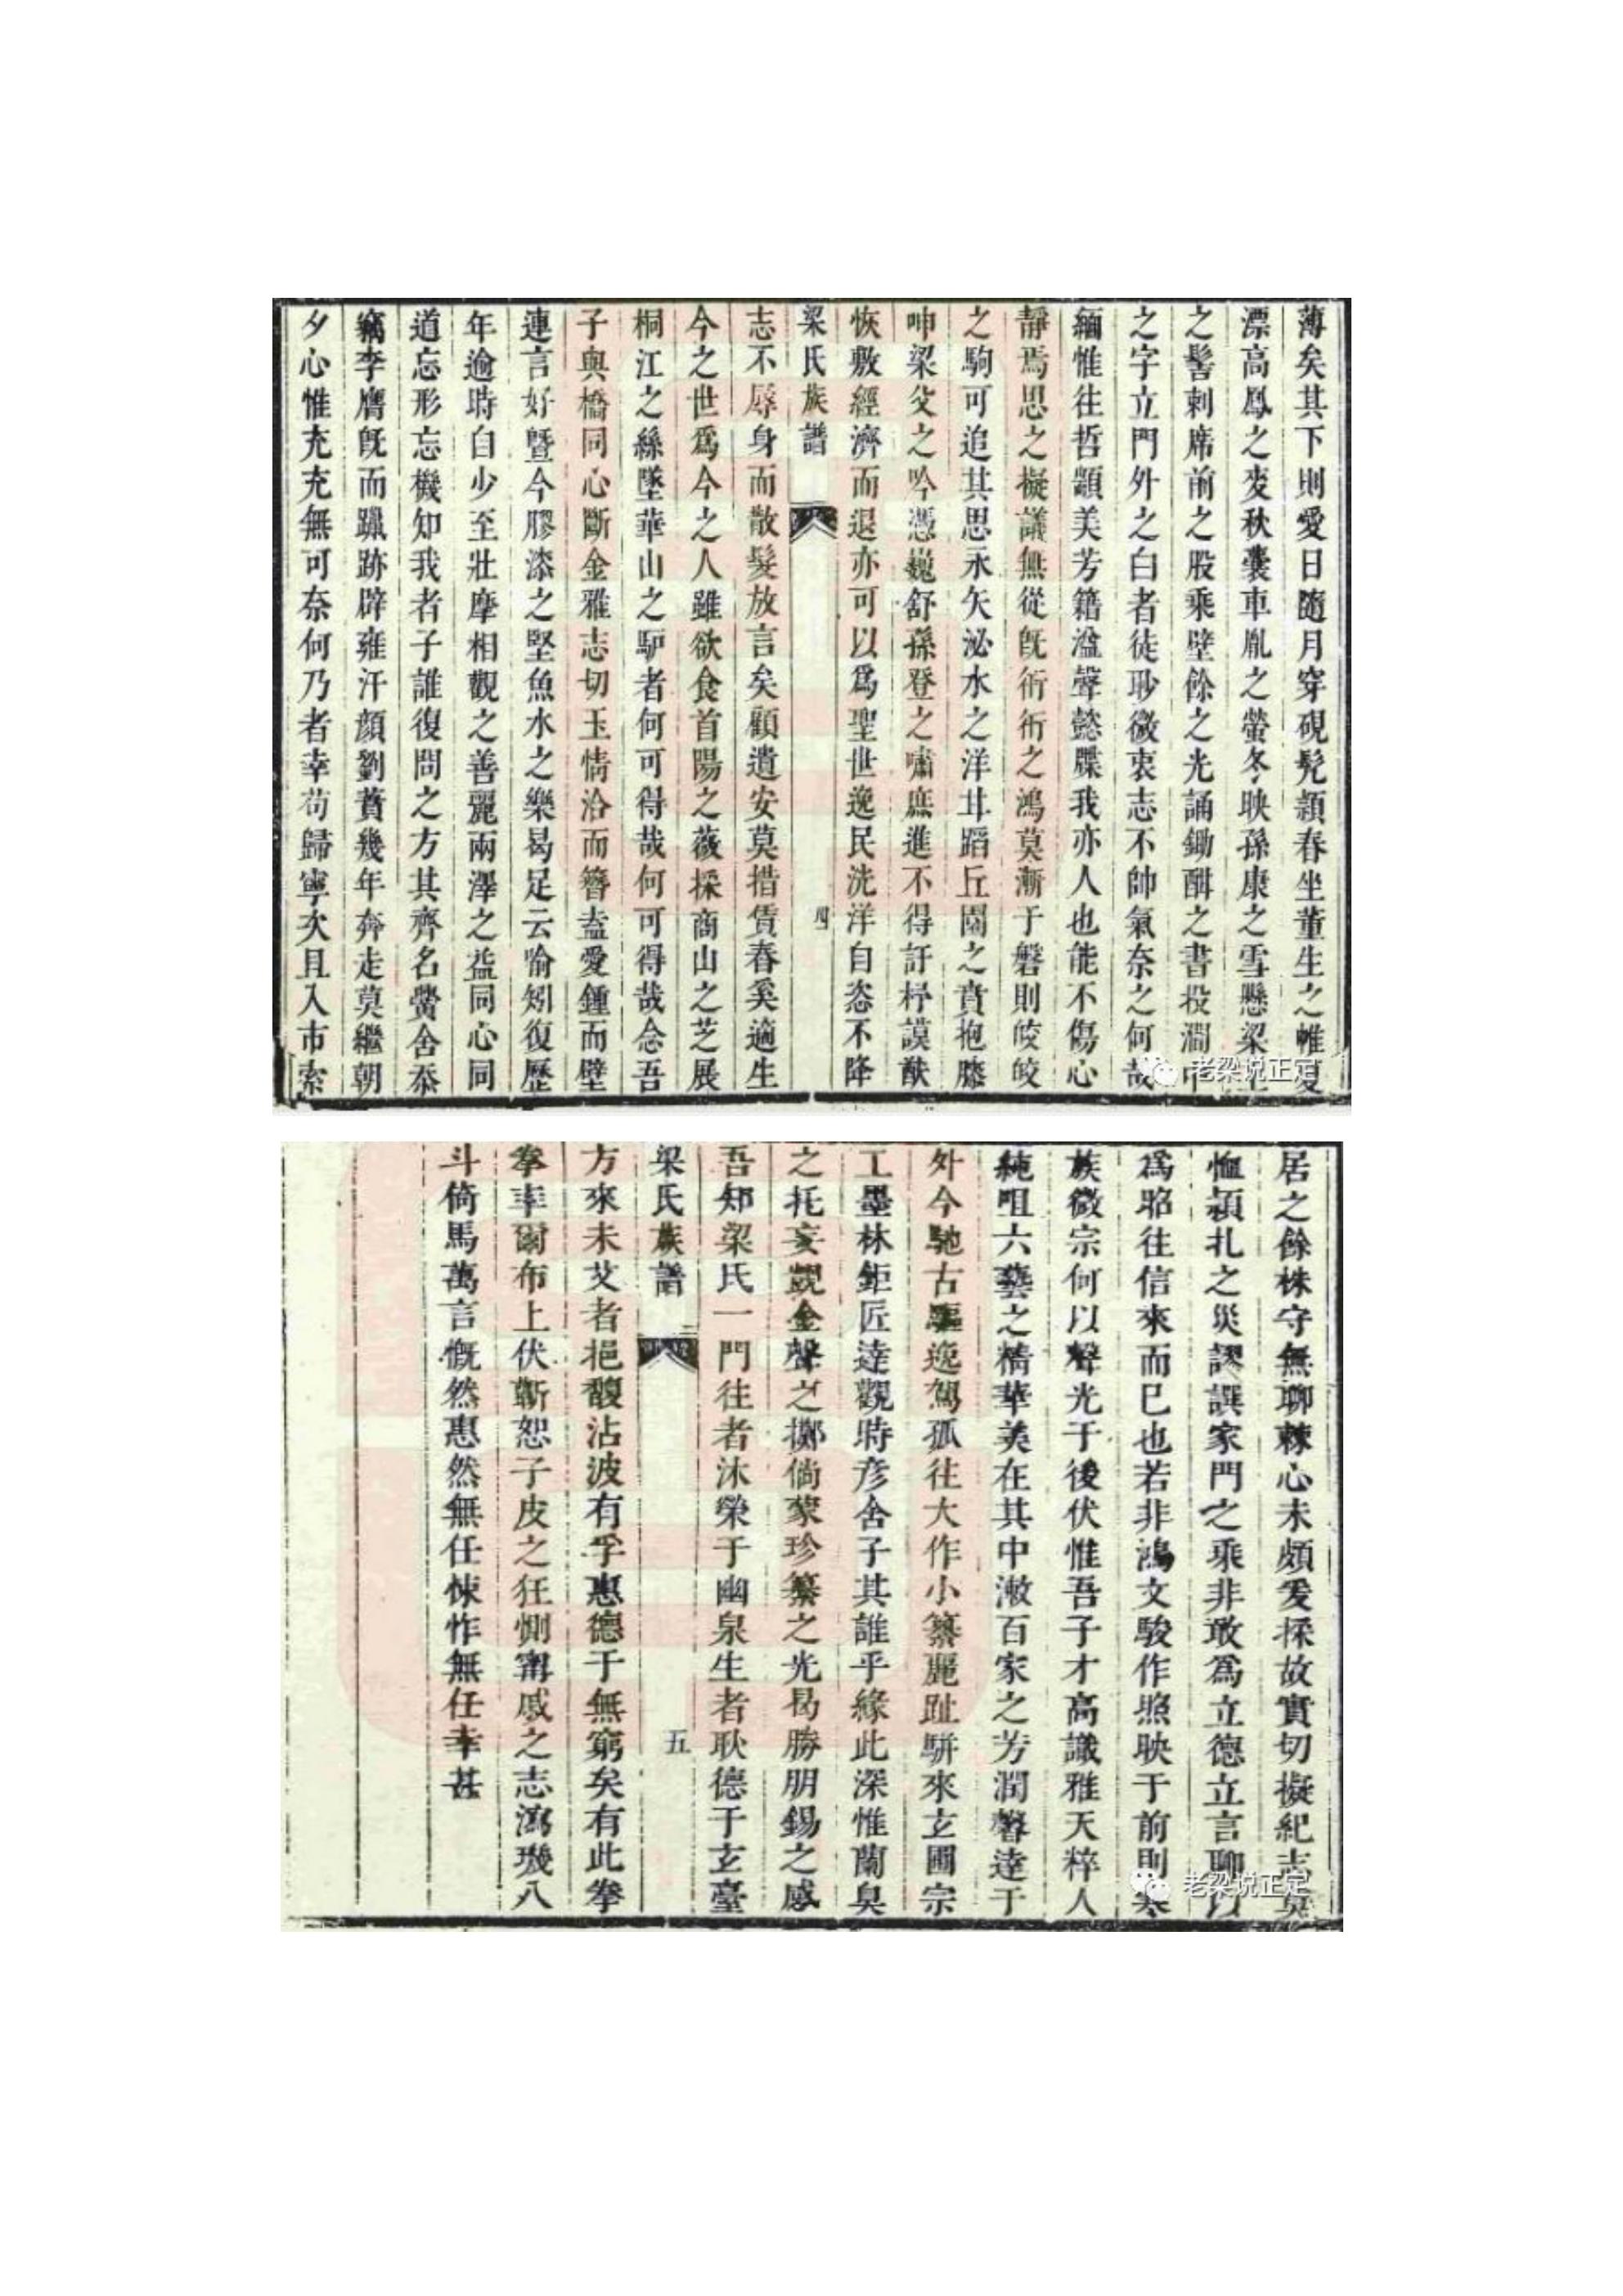 薄矣其下則愛日隨月穿硯髠頴春坐董生之帷夏
漂高鳳之麥秋囊車胤之螢冬映孫康之雪懸梁
之髻刺席前之股乘壁餘之光誦鋤酣之書投澗中
之字立門外之白者徒耿微衷志不帥氣奈之何哉
緬惟往哲顯美芳籍溢聲懿牒我亦人也能不傷心
靜焉思之擬議無從旣衎衎之鴻莫漸于磐則皎皎
之駒可追其思永矢泌水之洋井蹈丘園之賁抱膝
呻梁父之吟憑巍舒孫登之嘯庶進不得訏杼謨猷
恢敷經濟而退亦可以爲聖世逸民洸洋自恣不降
梁氏族譜
四
志不辱身而散髮放言矣顧遺安莫措賃舂奚適生
今之世爲今之人雖欲食首陽之薇採商山之芝展
桐江之絲墜華山之驴者何可得哉何可得哉念吾
子與橋同心斷金雅志切玉情洽而簪盍愛鍾而壁
連言好曁今膠漆之堅魚水之樂曷足云喻矧復歷
年逾時自少至壯摩相觀之善麗兩澤之益同心同
道忘形忘機知我者子誰復問之方其齊名黌舍忝
竊李膺旣而躡跡辟雍汗顏劉蕡幾年奔走莫繼朝
夕心惟充充無可奈何乃者幸苟歸寧次且入市索
居之餘株守無聊棘心未頗爰採故實切擬紀志莫
恤頴札之災謬譔家門之乘非敢爲立德立言聊以
爲昭往信來而已也若非鴻文駿作照映于前則寒
族微宗何以聲光于後伏惟吾子才高識雅天粹人
純咀六藝之精華美在其中漱百家之芳潤馨達于
外今馳古驅逸駕孤往大作小纂麗趾駢來玄圃宗
工墨林鉅匠達觀時彦舍子其誰乎緣此深惟蘭臭
之托妄覬金聲之擲倘蒙珍纂之光曷勝朋錫之感
吾知梁氏一門往者沐榮于幽泉生者耿德于玄臺
梁氏族譜
五
方來未艾者挹馥沾波有孚惠德于無窮矣有此拳
拳幸爾布上伏蘄恕子皮之狂惻甯戚之志瀉璣八
斗倚馬萬言慨然惠然無任悚怍無任幸甚
老梁说正定
老梁说正定